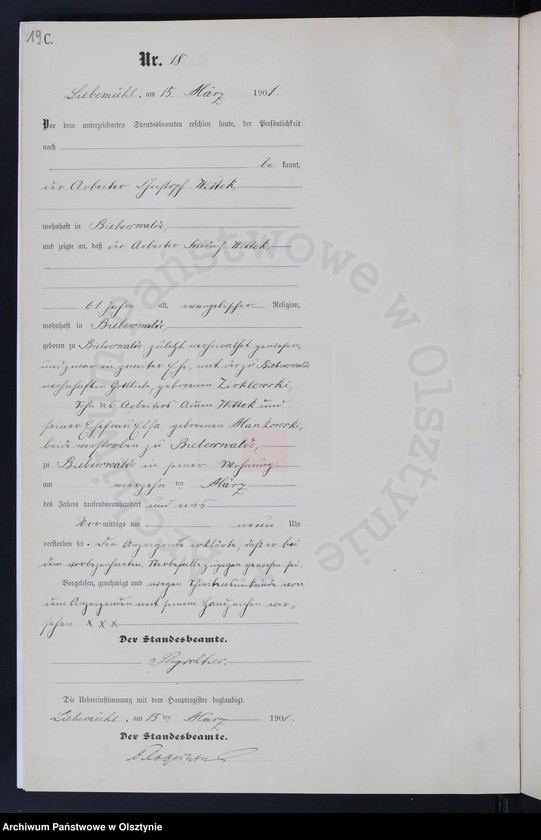 19 C.
Nr. 18
Liebemühl, am 15. März 1901.
Vor dem unterzeichneten Standesbeamten erschien heute, der Persönlichkeit
nach
be kannt,
der Arbeiter Christoph Wittek,
wohnhaft in Bieberswalde,
und zeigte an, daß der Arbeiter Friedrich Wittek,
61 Jahre alt, evangelischer Religion,
wohnhaft in Bieberswalde,
geboren zu Bieberswalde zuletzt verheirathet gewesen,
und zwar in zweiter Ehe, mit der zu Bieberswalde
wohnhaften Gottliebe, geborenen Zirklewski,
Sohn des Arbeiters Adam Wittek und
seiner Ehefrau Elsa, geborenen Mankowski,
beide verstorben zu Bieberswalde,
zu Bieberswalde in seiner Wohnung
am vierzehn ten März
des Jahres tausendneunhundert und eins
Vor mittags um neun Uhr
verstorben sei. Der Anzeigende erklärte, daß er bei
dem vorbezeichneten Sterbefalle zugegen gewesen sei.
Vorgelesen, genehmigt und wegen Schreibensunkunde von
dem Anzeigenden mit seinem Handzeichen ver-
sehen X X X
Der Standesbeamte.
Die Uebereinstimmung mit dem Hauptregister beglaubigt.
Liebemühl, am 15 ten März 1901.
Der Standesbeamte.
Archiwum Państwowe w Olsztynie
Archiwum Państwowe w Olsztynie